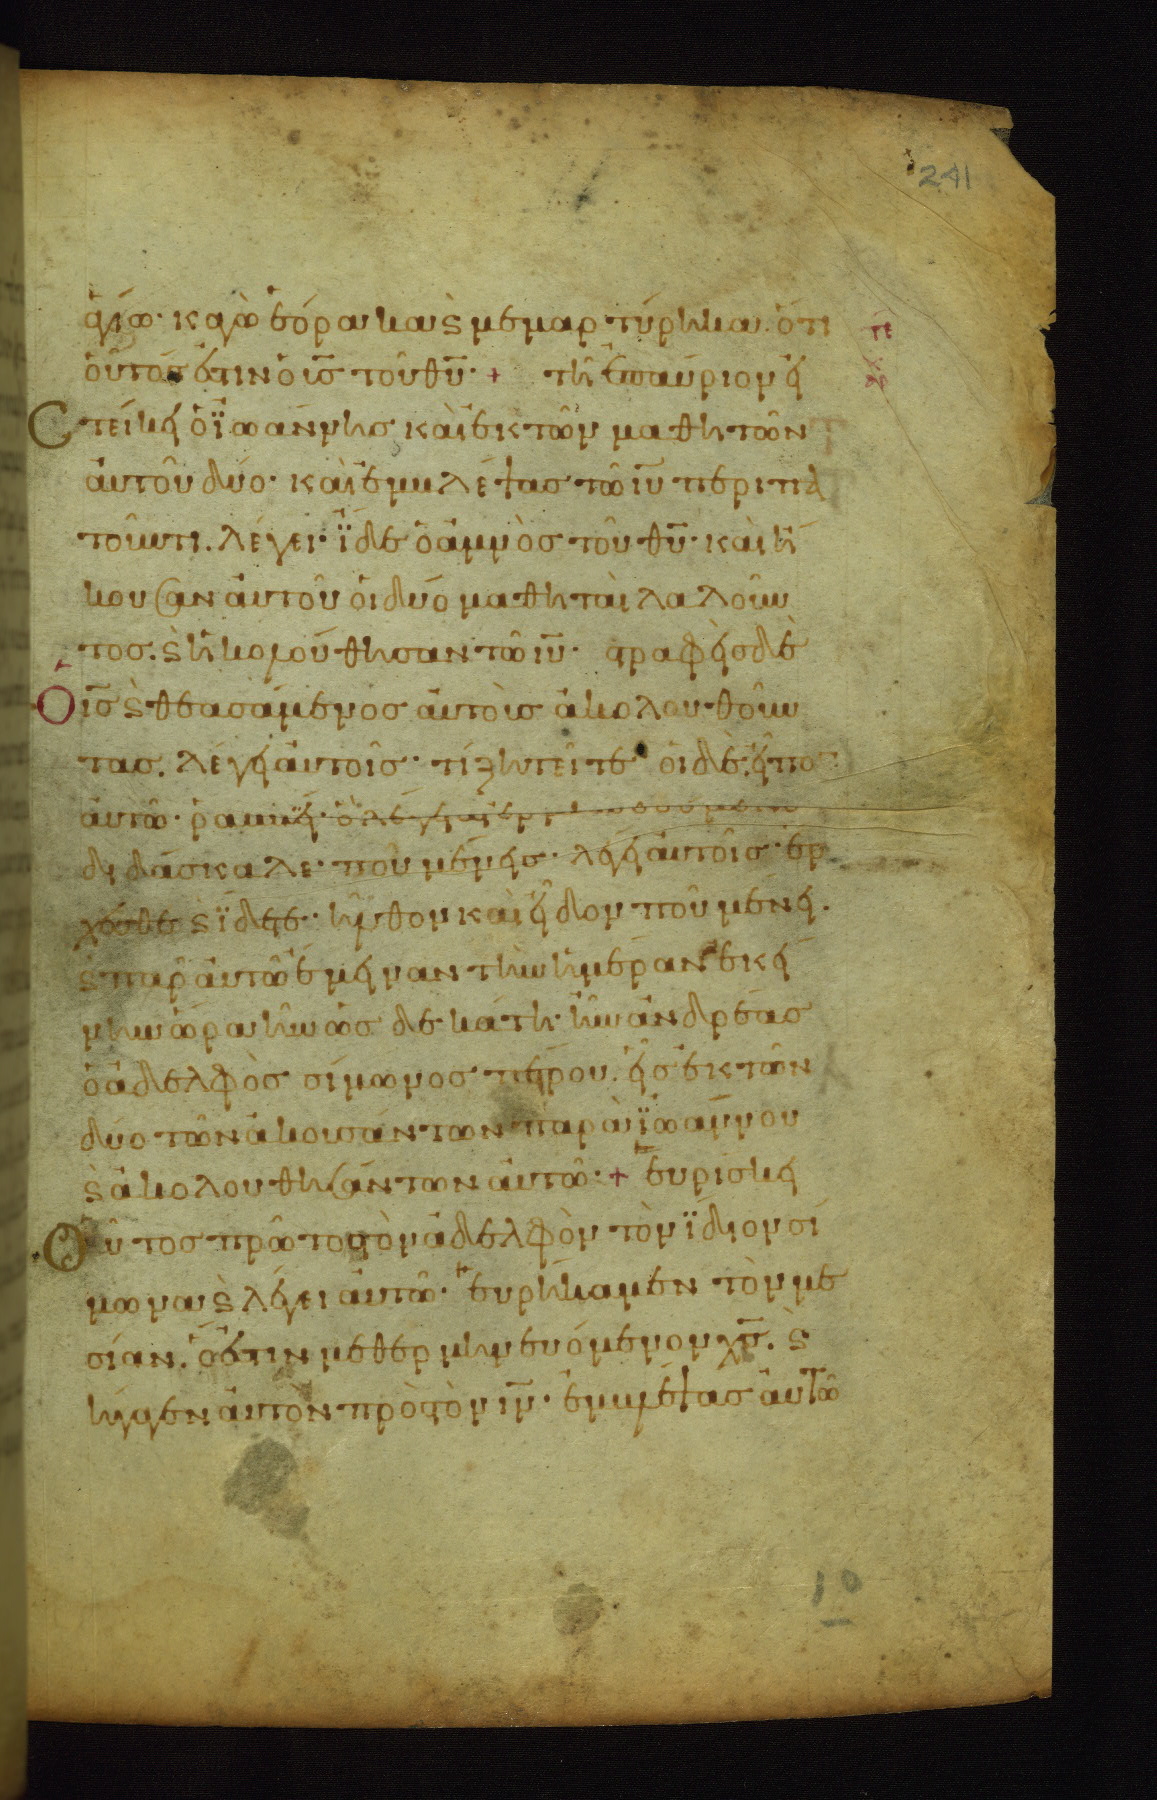 241
ἁγίω· κἀγὼ ἑόρακα ϗ μεμαρτύρηκα. ὅτι
οὗτός ἐστιν ὁ ι̅ς̅ τοῦ θ̅υ̅· + τῆ ἐπαύριον εἱ
στείκει ὁ ἰωάννης καὶ ἐκ τῶν μαθητῶν
αὐτοῦ δύο· καὶ ἐμβλέψας τῶ ι̅υ̅ περιπα
τοῦντι. λέγει· ἴδε ὁ ἀμνὸς τοῦ θ̅υ̅· καὶ ἤ
κουσαν αὐτοῦ οἱ δύο μαθηταὶ λαλοῦν
τος. ϗ ἠκολούθησαν τῶ ι̅υ̅· στραφεὶς δὲ
Ὁ ι̅ς̅ ϗ θεασάμενος αὐτοὺς ἀκολουθοῦν
τας. λέγει αὐτοῖς· τί ζητεῖτε οἱ δὲ. εἶπον
αὐτῶ· ῥαββεί· ὃ λέγεται ἑρμηνευόμενον
διδάσκαλε· ποῦ μένεις· λέγει αὐτοῖς· ἔρ
χεσθε ϗ ἴδετε· ἦλθον καὶ εἶδον ποῦ μένει.
ϗ παρ' αὐτῶ ἔμειναν τὴν ἡμέραν ἐκεί
νην ὥρα ἦν ὡς δεκάτη· ἦν ἀνδρέας
ὁ ἀδελφὸς σίμωνος πέτρου. εἷς ἐκ τῶν
δύο τῶν ἀκουσάντων παρὰ ἰωάννου
ϗ ἀκολουθησάντων αὐτῶ· + εὑρίσκει
Οὗτος πρῶτος τὸν ἀδελφὸν τὸν ἴδιον σί
μωνα ϗ λέγει αὐτῶ· εὑρήκαμεν τὸν με
σίαν. ὅ ἐστιν μεθερμηνευόμενον χ̅ς̅. ϗ
ἤγαγεν αὐτὸν πρὸς τὸν ι̅ν̅· ἐμβλέψας αὐτῶ
10